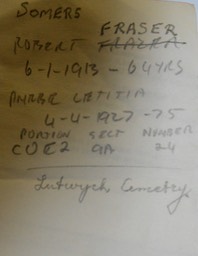 SOMERS
ROBERT FRASER FRAZER
6-1-1913 - 64YRS
LETITIA
4-4-1927 - 75
PORTION SECT NUMBER
COE2 9A 24
Lutwych Cemetry